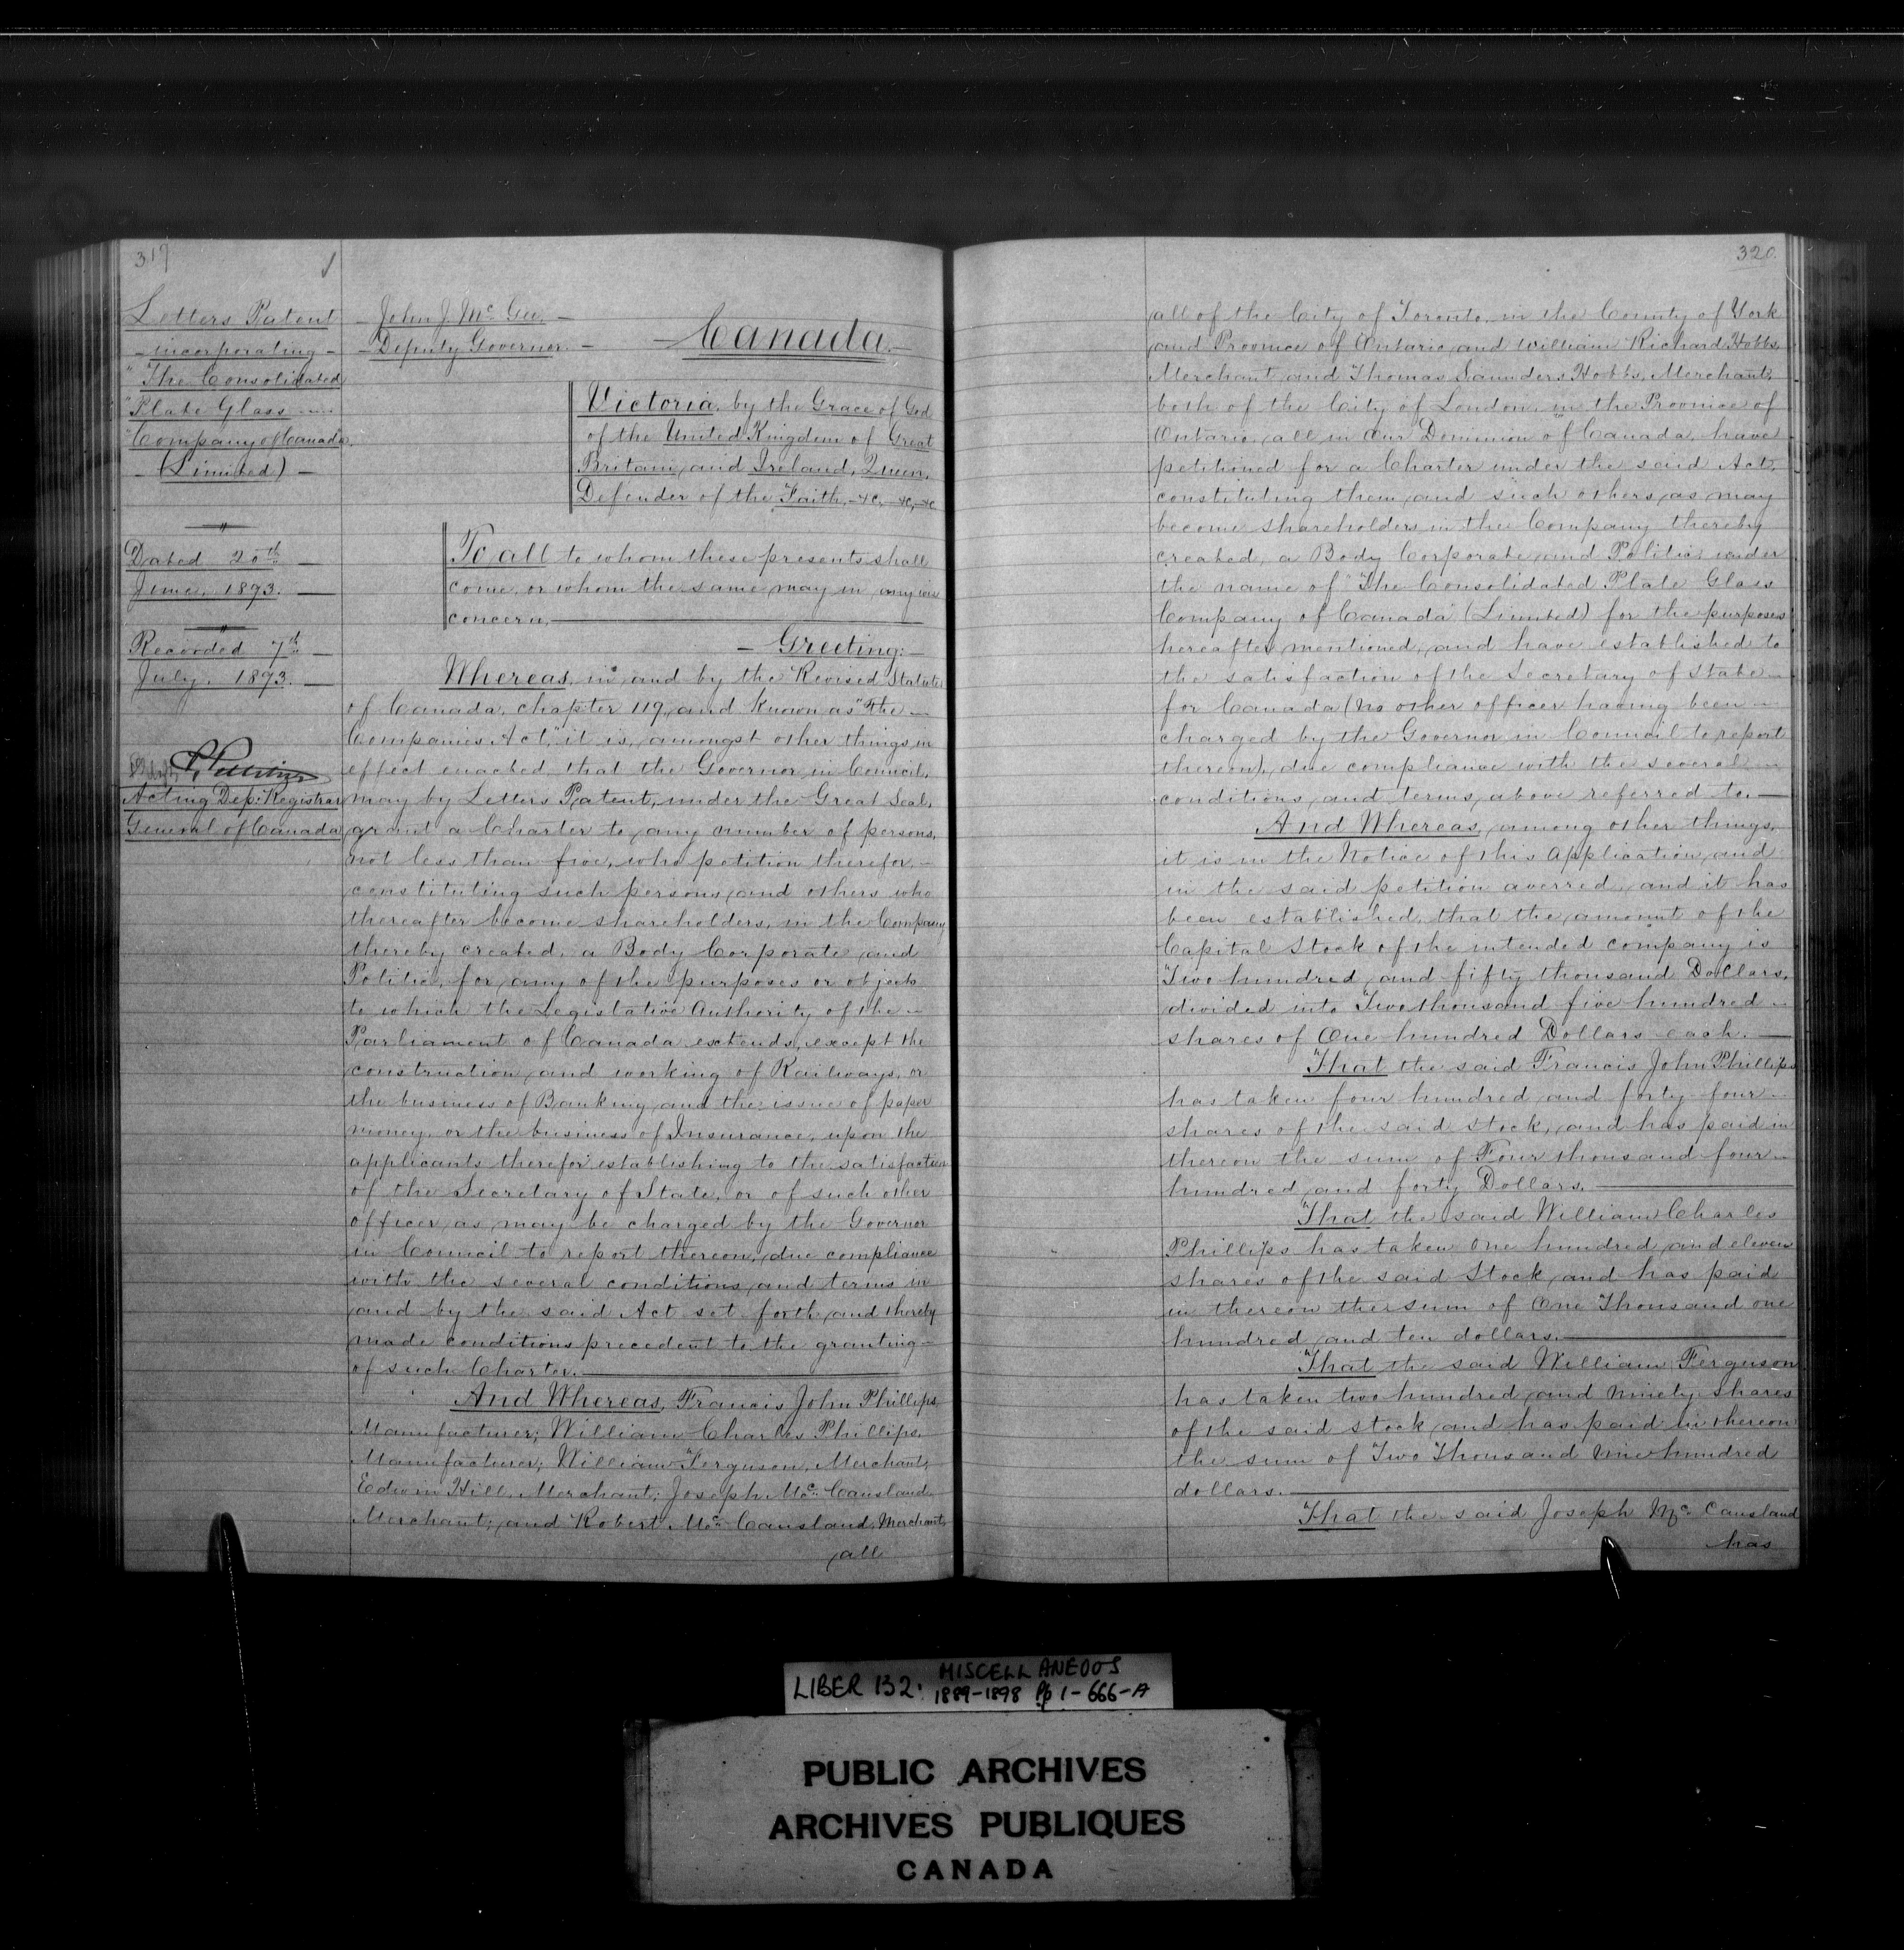 319
Letters Patent
- incorporating -
"The Consolidated
"Plate Glass
"Company of Canada"
- (Limited) -
Dated 20th
June, 1893.
Recorded 7th
July. 1893.
Acting Dep: Registrar
General of Canada
- John J. McGee. -
- Deputy Governor. -
- Canada. -
Victoria, by the Grace of God
of the United Kingdom of Great
Britain and Ireland, Queen,
Defender of the Faith, &c, &c, &c
To all to whom these presents shall
come, or whom the same may in any wise
concern,
- Greeting: -
Whereas, in and by the Revised Statutes
of Canada, chapter 119, and known as "The
Companies Act," it is, amongst other things in
effect enacted that the Governor in Council,
may by Letters Patent, under the Great Seal,
grant a Charter to any number of persons,
not less than five, who petition therefor,
constituting such persons, and others who
thereafter become shareholders, in the Company
thereby created, a Body Corporate and
Politic, for any of the purposes or objects
to which the Legislative Authority of the
Parliament of Canada extends, except the
construction and working of Railways, or
the business of Banking and the issue of paper
money, or the business of Insurance, upon the
applicants therefor establishing to the satisfaction
of the Secretary of State, or of such other
officer, as may be charged by the Governor
in Council to report thereon, due compliance
with the several conditions and terms in
and by the said Act set forth, and thereby
made conditions precedent to the granting
of such Charter.
And Whereas, Francis John Phillips,
Manufacturer; William Charles Phillips,
Manufacturer; William Ferguson, Merchant;
Edwin Hill, Merchant; Joseph McCausland
Merchant; and Robert McCausland, Merchant,
all
320
all of the City of Toronto, in the County of York
and Province of Ontario, and William Richard Hobbs,
Merchant, and Thomas Saunders Hobbs, Merchant,
both of the City of London, in the Province of
Ontario, all in Our Dominion of Canada, have
petitioned for a Charter under the said Act,
constituting them, and such others, as may
become shareholders in the Company thereby
created, a Body Corporate and Politic, under
the name of "The Consolidated Plate Glass
Company of Canada" (Limited) for the purposes
hereafter mentioned, and have established to
the satisfaction of the Secretary of State
for Canada (no other officer having been
charged by the Governor in Council to report
thereon), due compliance with the several
conditions, and terms, above referred to.
And Whereas, among other things,
it is in the Notice of this Application, and
in the said petition averred, and it has
been established, that the amount of the
Capital Stock of the intended company is
Two hundred and fifty thousand Dollars,
divided into Two thousand five hundred
shares of One hundred Dollars each.
That the said Francis John Phillips
has taken four hundred and forty-four
shares of the said stock, and has paid in
thereon the sum of Four thousand four
hundred and forty Dollars.
That the said William Charles
Phillips has taken One hundred and eleven
shares of the said Stock and has paid
in thereon the sum of One Thousand one
hundred and ten dollars.
That the said William Ferguson
has taken two hundred and ninety shares
of the said stock and has paid in thereon
the sum of Two Thousand Nine hundred
dollars.
That the said Joseph McCausland
has
LIBER 132: MISCELLANEOUS
1889-1898 Pp 1-666-A
PUBLIC ARCHIVES
ARCHIVES PUBLIQUES
CANADA